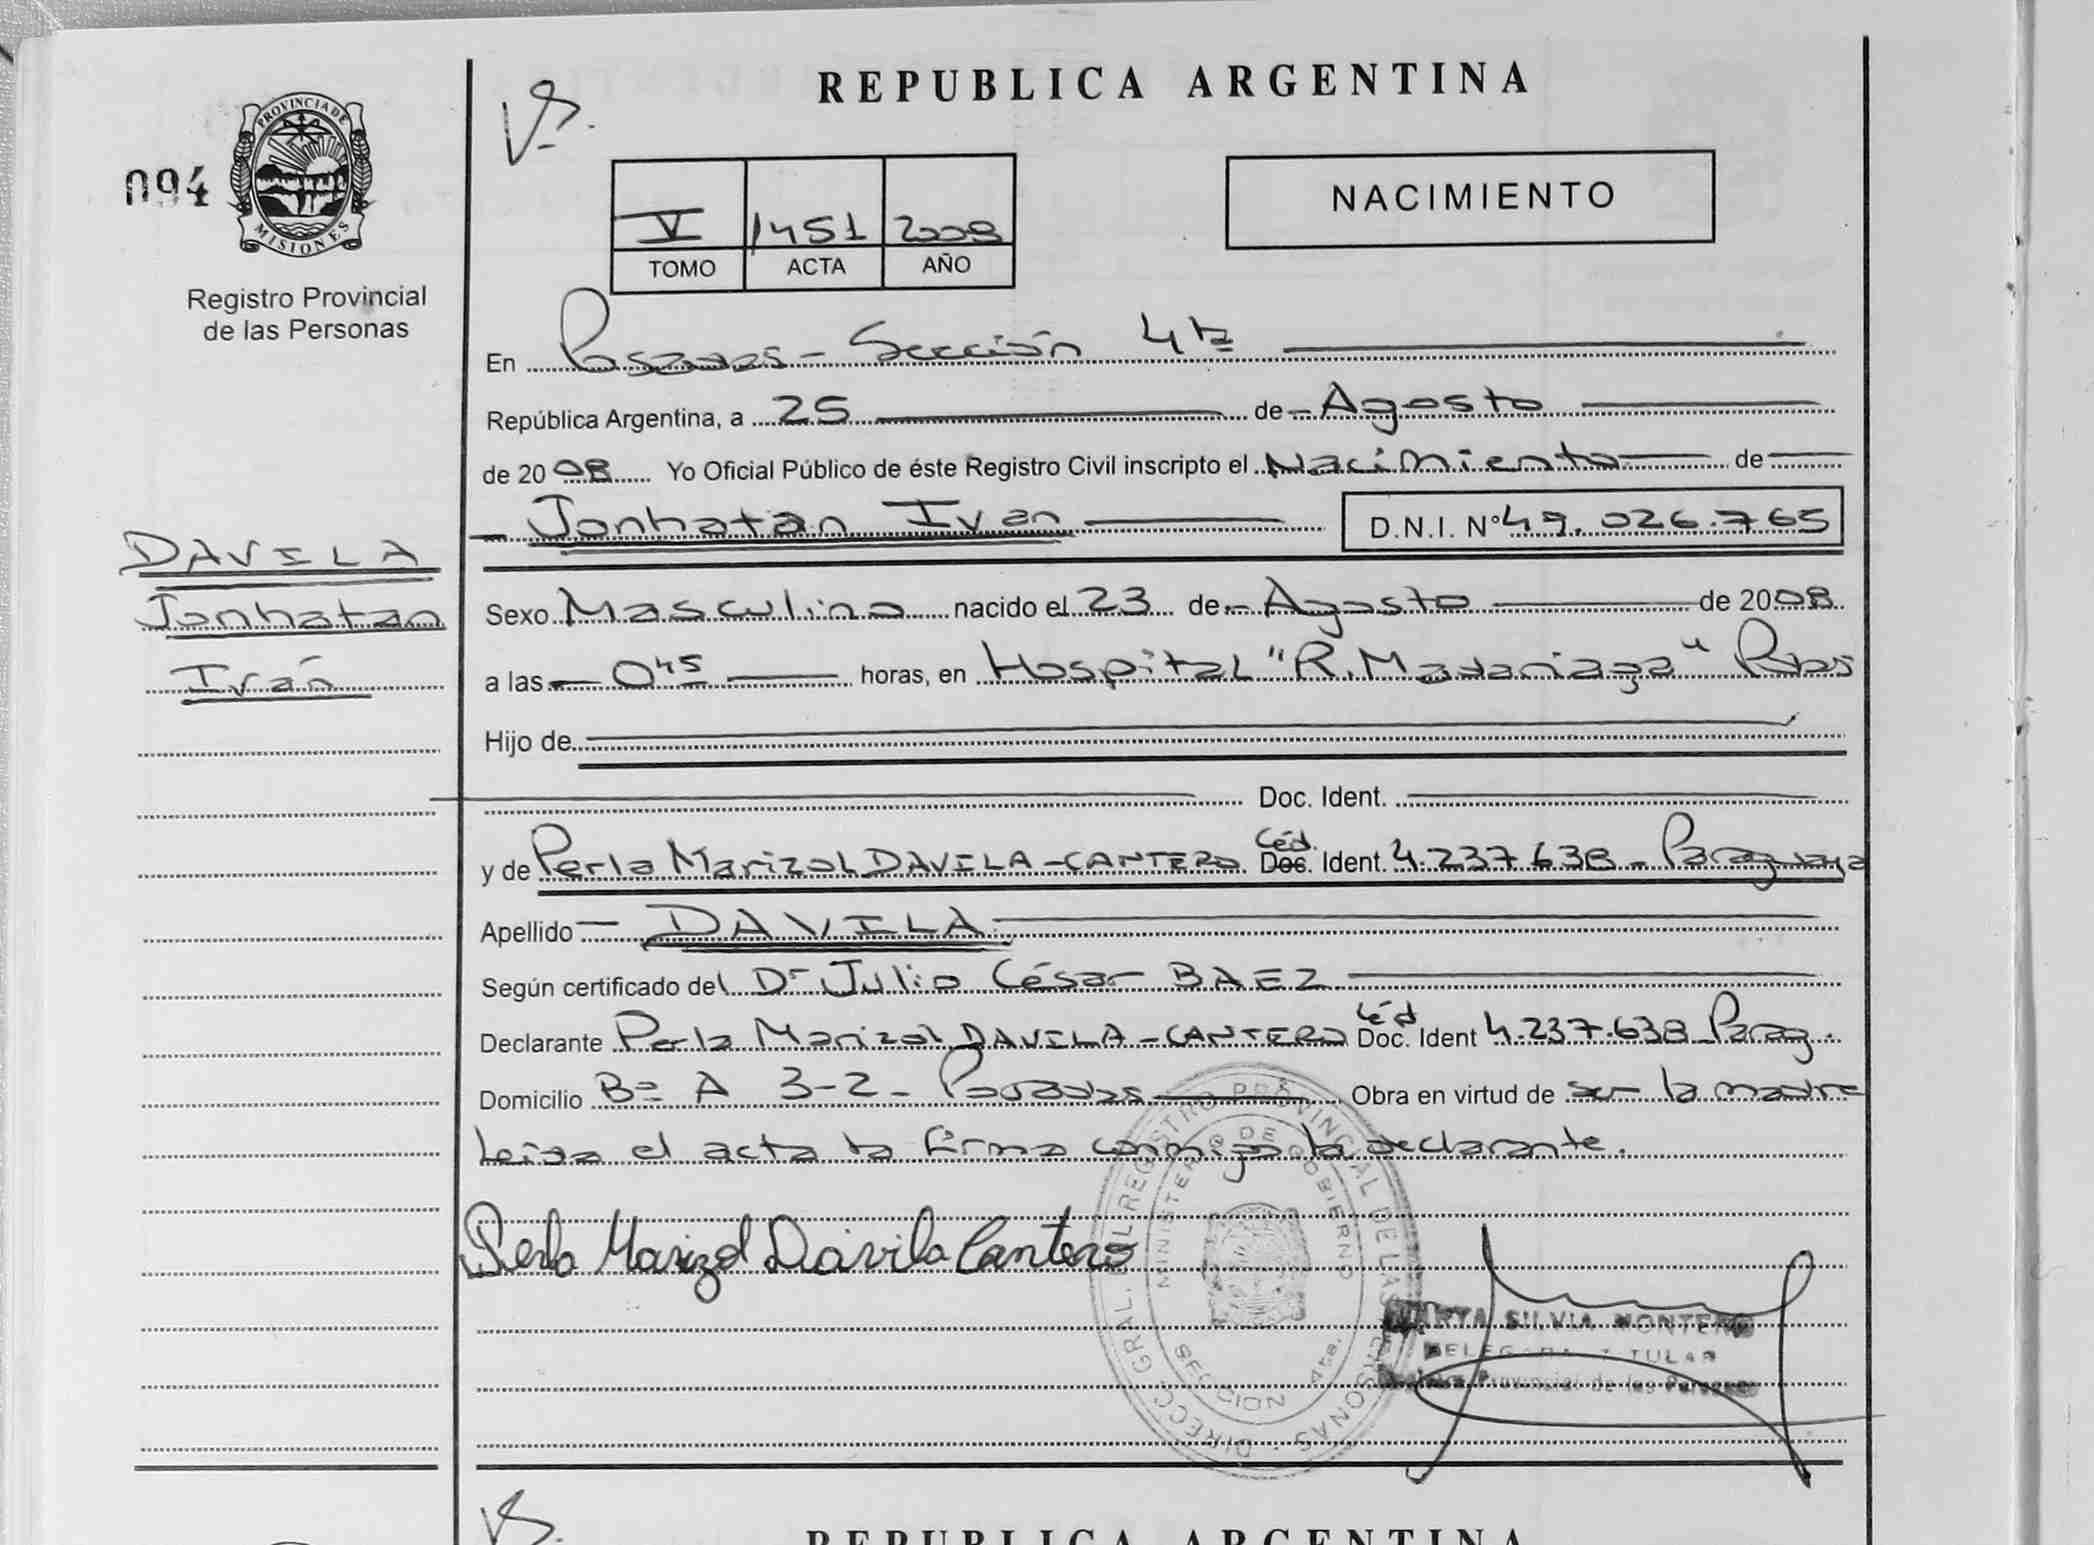 REPUBLICA ARGENTINA
Vº.
094
PROVINCIA DE
MISIONES
Registro Provincial
de las Personas
V 1451 2008
TOMO ACTA AÑO
NACIMIENTO
En Posadas - Sección 4ta
República Argentina, a 25 de Agosto
de 2008 Yo Oficial Público de éste Registro Civil inscripto el Nacimiento de
Jonhatan Ivan D.N.I. Nº 49.026.765
DAVILA
Jonhatan
Iván
Sexo Masculino nacido el 23 de Agosto de 2008
a las 0 45 horas, en Hospital "R. Madariaga" Pdas
Hijo de
Doc. Ident.
y de Perla Marizol DAVILA-CANTERO Céd. Doc. Ident. 4.237.638 - Paraguaya
Apellido DAVILA
Según certificado del Dr Julio César BAEZ
Declarante Perla Marizol DAVILA-CANTERO Céd Doc. Ident 4.237.638 Parag.
Domicilio Bº A 3-2 - Posadas Obra en virtud de ser la madre
Leída el acta la firma conmigo la declarante.
Perla Marizol Dávila Cantero
DIRECC. GRAL. DEL REGISTRO PROVINCIAL DE LAS PERSONAS
MINISTERIO DE GOBIERNO
SECCION 4ta.
SILVIA MONTERO
DELEGADA TITULAR
Provincial de las Personas
REPUBLICA ARGENTINA